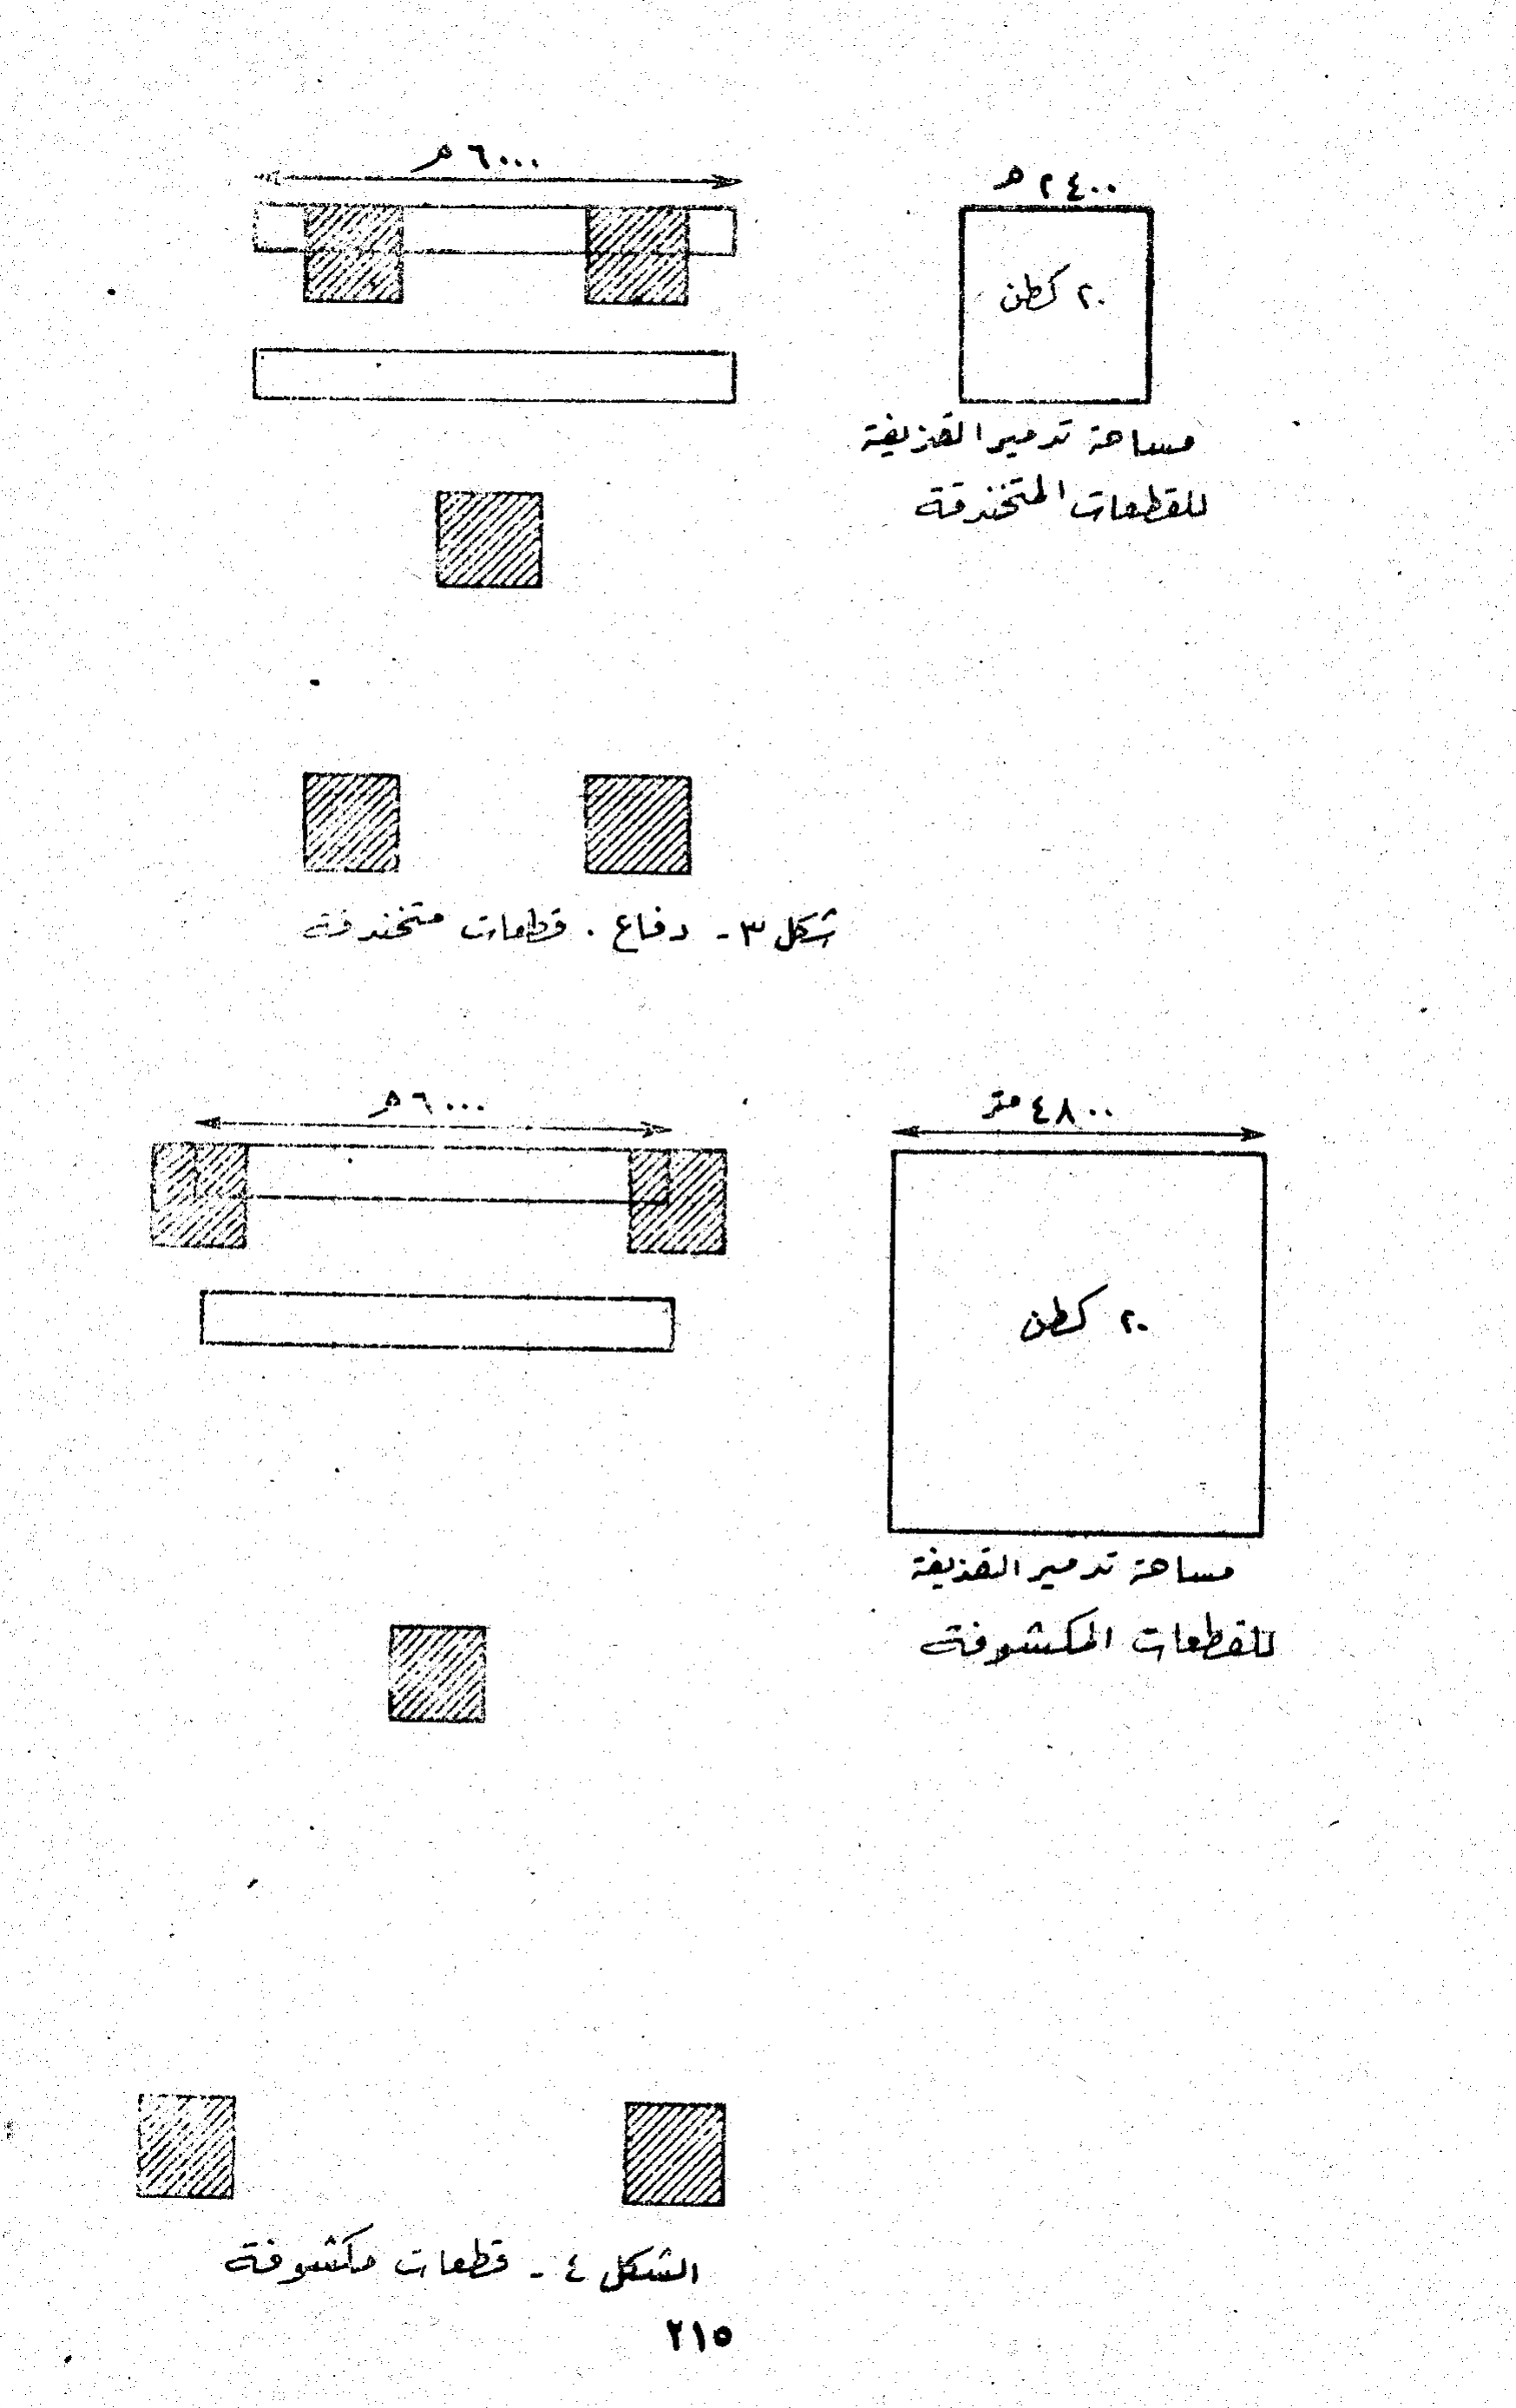 ٢٤٠٠ م
٢٠ كطن
مساحة تدمير القذيفة
للقطعات المتخندقة
٦٠٠٠ م
شكل ٣ - دفاع . قطعات متخندقة
٤٨٠٠ متر
٢٠ كطن
مساحة تدمير القذيفة
للقطعات المكشوفة
٦٠٠٠ م
الشكل ٤ - قطعات مكشوفة
٢١٥